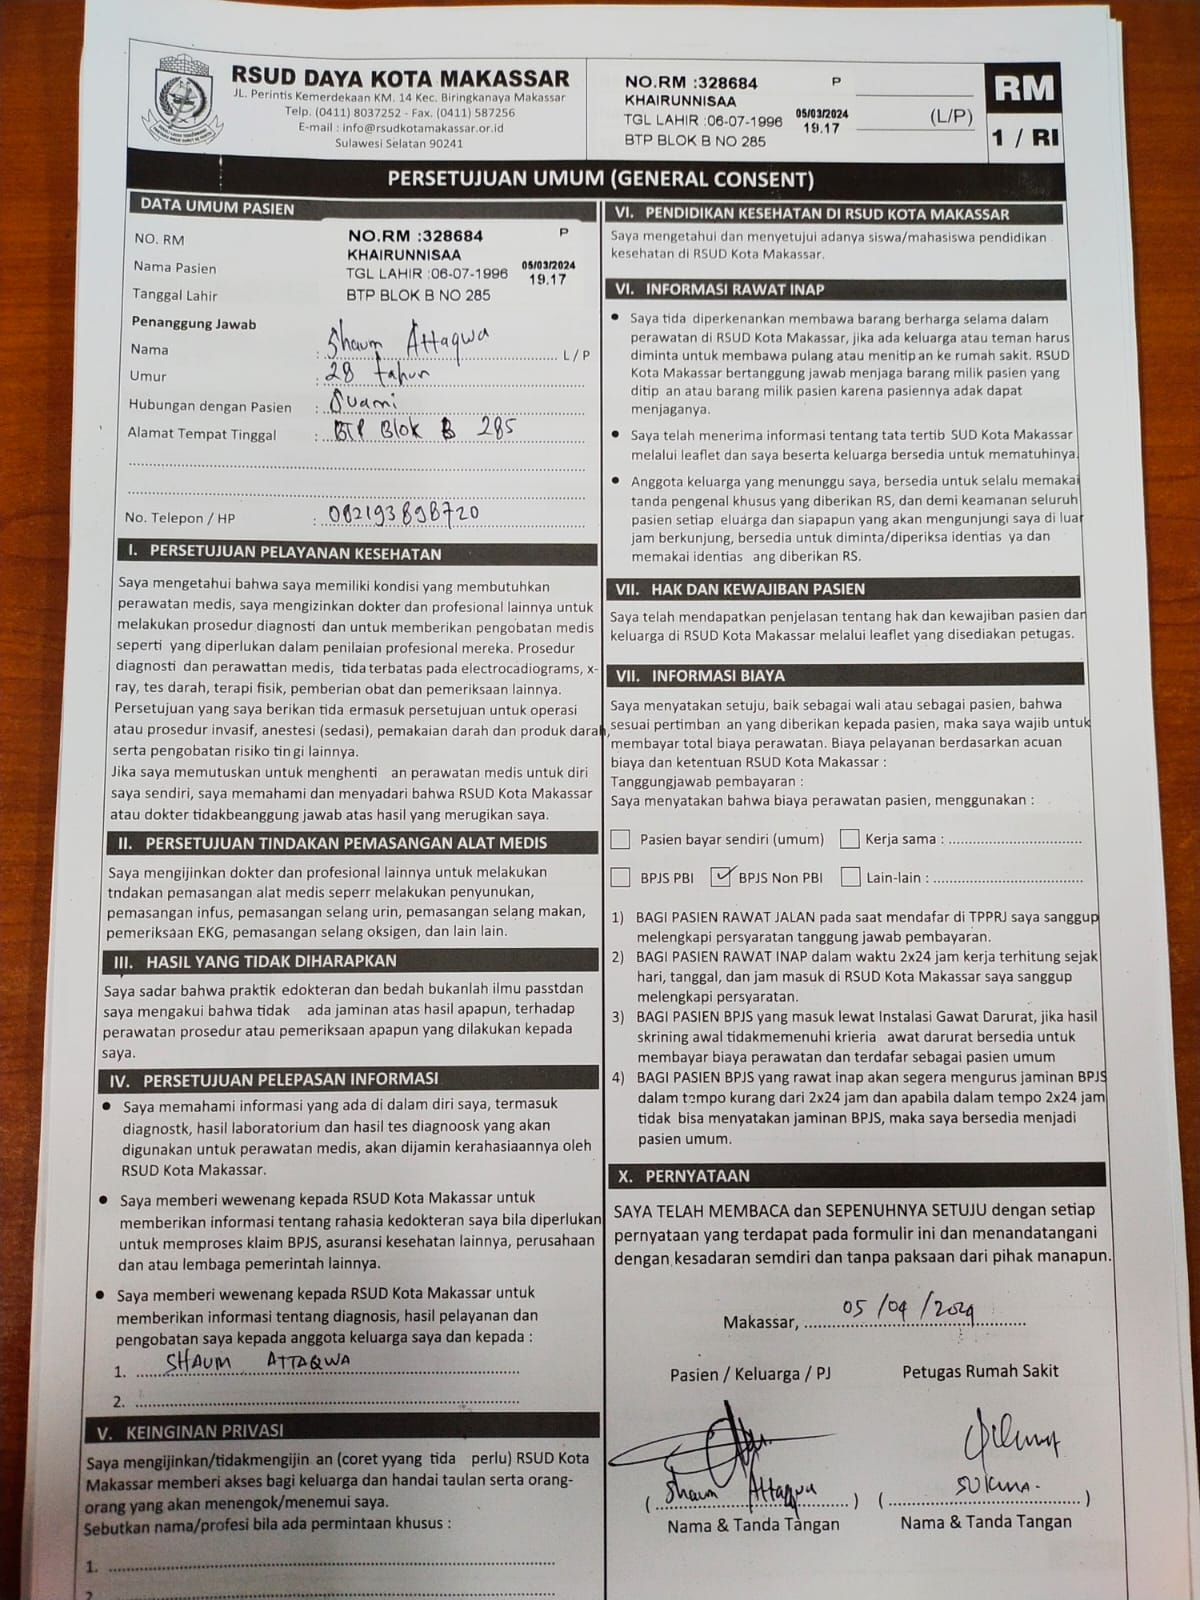 RSUD DAYA KOTA MAKASSAR
JL. Perintis Kemerdekaan KM. 14 Kec. Biringkanaya Makassar
Telp. (0411) 8037252 - Fax. (0411) 587256
E-mail : info@rsudkotamakassar.or.id
Sulawesi Selatan 90241
NO.RM :328684 P
KHAIRUNNISAA
TGL LAHIR :06-07-1996 05/03/2024
19.17
BTP BLOK B NO 285
(L/P)
RM
1 / RI
PERSETUJUAN UMUM (GENERAL CONSENT)
DATA UMUM PASIEN
NO. RM
Nama Pasien
Tanggal Lahir
NO.RM :328684 P
KHAIRUNNISAA
TGL LAHIR :06-07-1996 05/03/2024
19.17
BTP BLOK B NO 285
Penanggung Jawab
Nama : Shaum Attaqwa L / P
Umur : 28 tahun
Hubungan dengan Pasien : Suami
Alamat Tempat Tinggal : BTP Blok B 285
No. Telepon / HP : 082193898720
I. PERSETUJUAN PELAYANAN KESEHATAN
Saya mengetahui bahwa saya memiliki kondisi yang membutuhkan
perawatan medis, saya mengizinkan dokter dan profesional lainnya untuk
melakukan prosedur diagnosti dan untuk memberikan pengobatan medis
seperti yang diperlukan dalam penilaian profesional mereka. Prosedur
diagnosti dan perawattan medis, tida terbatas pada electrocadiograms, x-
ray, tes darah, terapi fisik, pemberian obat dan pemeriksaan lainnya.
Persetujuan yang saya berikan tida ermasuk persetujuan untuk operasi
atau prosedur invasif, anestesi (sedasi), pemakaian darah dan produk darah,
serta pengobatan risiko tin gi lainnya.
Jika saya memutuskan untuk menghenti an perawatan medis untuk diri
saya sendiri, saya memahami dan menyadari bahwa RSUD Kota Makassar
atau dokter tidakbeanggung jawab atas hasil yang merugikan saya.
II. PERSETUJUAN TINDAKAN PEMASANGAN ALAT MEDIS
Saya mengijinkan dokter dan profesional lainnya untuk melakukan
tndakan pemasangan alat medis seperr melakukan penyunukan,
pemasangan infus, pemasangan selang urin, pemasangan selang makan,
pemeriksaan EKG, pemasangan selang oksigen, dan lain lain.
III. HASIL YANG TIDAK DIHARAPKAN
Saya sadar bahwa praktik edokteran dan bedah bukanlah ilmu passtdan
saya mengakui bahwa tidak ada jaminan atas hasil apapun, terhadap
perawatan prosedur atau pemeriksaan apapun yang dilakukan kepada
saya.
IV. PERSETUJUAN PELEPASAN INFORMASI
• Saya memahami informasi yang ada di dalam diri saya, termasuk
diagnostk, hasil laboratorium dan hasil tes diagnoosk yang akan
digunakan untuk perawatan medis, akan dijamin kerahasiaannya oleh
RSUD Kota Makassar.
• Saya memberi wewenang kepada RSUD Kota Makassar untuk
memberikan informasi tentang rahasia kedokteran saya bila diperlukan
untuk memproses klaim BPJS, asuransi kesehatan lainnya, perusahaan
dan atau lembaga pemerintah lainnya.
• Saya memberi wewenang kepada RSUD Kota Makassar untuk
memberikan informasi tentang diagnosis, hasil pelayanan dan
pengobatan saya kepada anggota keluarga saya dan kepada :
1. SHAUM ATTAQWA
2.
V. KEINGINAN PRIVASI
Saya mengijinkan/tidakmengijin an (coret yyang tida perlu) RSUD Kota
Makassar memberi akses bagi keluarga dan handai taulan serta orang-
orang yang akan menengok/menemui saya.
Sebutkan nama/profesi bila ada permintaan khusus :
1.
2.
VI. PENDIDIKAN KESEHATAN DI RSUD KOTA MAKASSAR
Saya mengetahui dan menyetujui adanya siswa/mahasiswa pendidikan
kesehatan di RSUD Kota Makassar.
VI. INFORMASI RAWAT INAP
• Saya tida diperkenankan membawa barang berharga selama dalam
perawatan di RSUD Kota Makassar, jika ada keluarga atau teman harus
diminta untuk membawa pulang atau menitip an ke rumah sakit. RSUD
Kota Makassar bertanggung jawab menjaga barang milik pasien yang
ditip an atau barang milik pasien karena pasiennya adak dapat
menjaganya.
• Saya telah menerima informasi tentang tata tertib SUD Kota Makassar
melalui leaflet dan saya beserta keluarga bersedia untuk mematuhinya.
• Anggota keluarga yang menunggu saya, bersedia untuk selalu memakai
tanda pengenal khusus yang diberikan RS, dan demi keamanan seluruh
pasien setiap eluarga dan siapapun yang akan mengunjungi saya di luar
jam berkunjung, bersedia untuk diminta/diperiksa identias ya dan
memakai identias ang diberikan RS.
VII. HAK DAN KEWAJIBAN PASIEN
Saya telah mendapatkan penjelasan tentang hak dan kewajiban pasien dan
keluarga di RSUD Kota Makassar melalui leaflet yang disediakan petugas.
VII. INFORMASI BIAYA
Saya menyatakan setuju, baik sebagai wali atau sebagai pasien, bahwa
sesuai pertimban an yang diberikan kepada pasien, maka saya wajib untuk
membayar total biaya perawatan. Biaya pelayanan berdasarkan acuan
biaya dan ketentuan RSUD Kota Makassar :
Tanggungjawab pembayaran :
Saya menyatakan bahwa biaya perawatan pasien, menggunakan :
Pasien bayar sendiri (umum) Kerja sama :
BPJS PBI ✓ BPJS Non PBI Lain-lain :
1) BAGI PASIEN RAWAT JALAN pada saat mendafar di TPPRJ saya sanggup
melengkapi persyaratan tanggung jawab pembayaran.
2) BAGI PASIEN RAWAT INAP dalam waktu 2x24 jam kerja terhitung sejak
hari, tanggal, dan jam masuk di RSUD Kota Makassar saya sanggup
melengkapi persyaratan.
3) BAGI PASIEN BPJS yang masuk lewat Instalasi Gawat Darurat, jika hasil
skrining awal tidakmemenuhi krieria awat darurat bersedia untuk
membayar biaya perawatan dan terdafar sebagai pasien umum
4) BAGI PASIEN BPJS yang rawat inap akan segera mengurus jaminan BPJS
dalam tempo kurang dari 2x24 jam dan apabila dalam tempo 2x24 jam
tidak bisa menyatakan jaminan BPJS, maka saya bersedia menjadi
pasien umum.
X. PERNYATAAN
SAYA TELAH MEMBACA dan SEPENUHNYA SETUJU dengan setiap
pernyataan yang terdapat pada formulir ini dan menandatangani
dengan kesadaran semdiri dan tanpa paksaan dari pihak manapun.
Makassar, 05/04/2024
Pasien / Keluarga / PJ Petugas Rumah Sakit
( Shaum Attaqwa ) ( )
Nama & Tanda Tangan Nama & Tanda Tangan